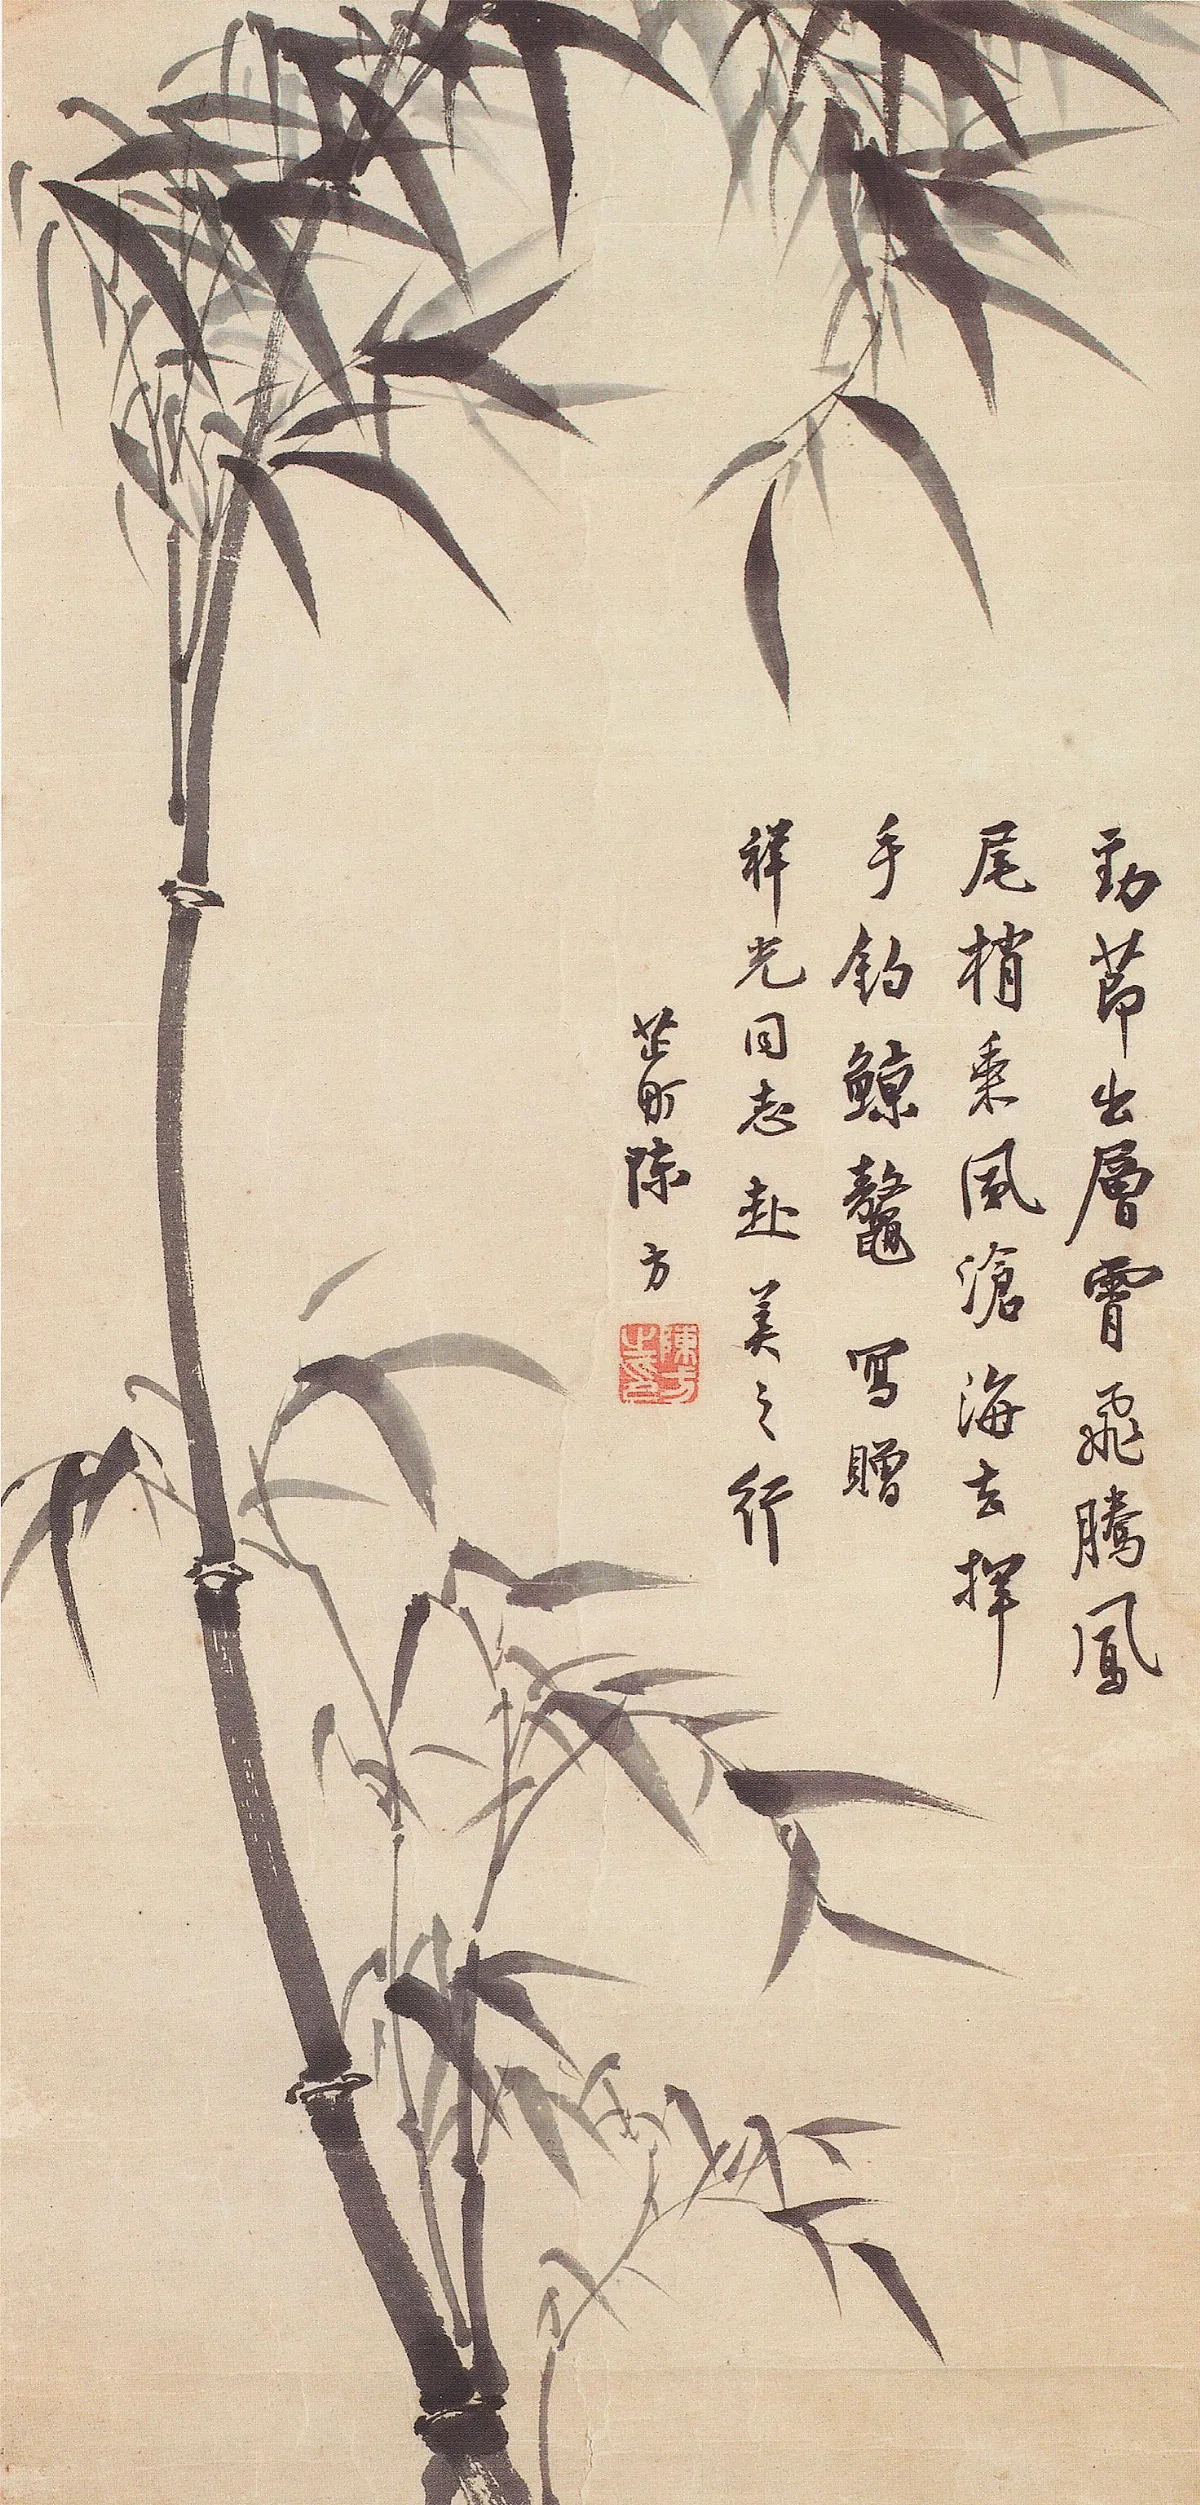 勁節出層霄飛騰鳳
尾梢乘風滄海去揮
手釣鯨鼇 寫贈
祥光同志赴美之行
芷町陳方
陳方